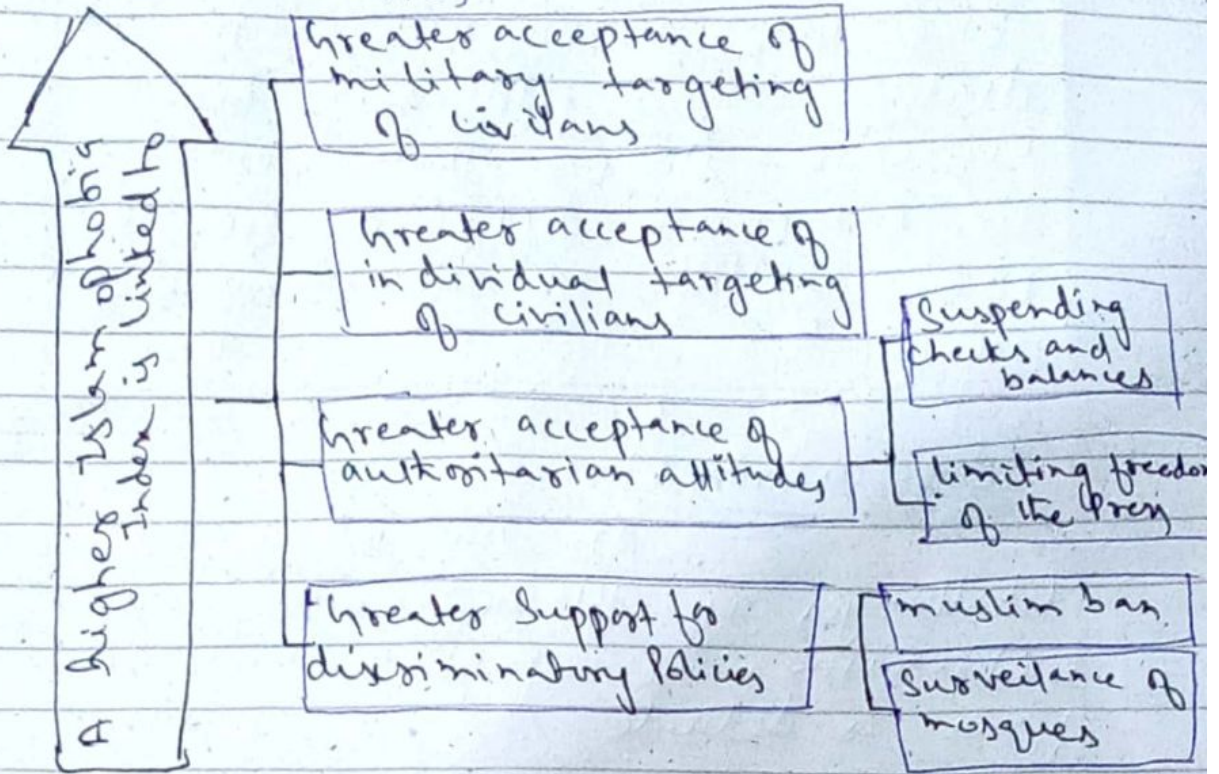 A higher Islamophobia
Index is linked to
Greater acceptance of
military targeting
of civilans
Greater acceptance of
individual targeting
of civilians
Greater acceptance of
authoritarian attitudes
Suspending
checks and
balances
limiting freedom
of the Press
Greater Support for
discriminatory Policies
muslim ban
Surveilance of
mosques